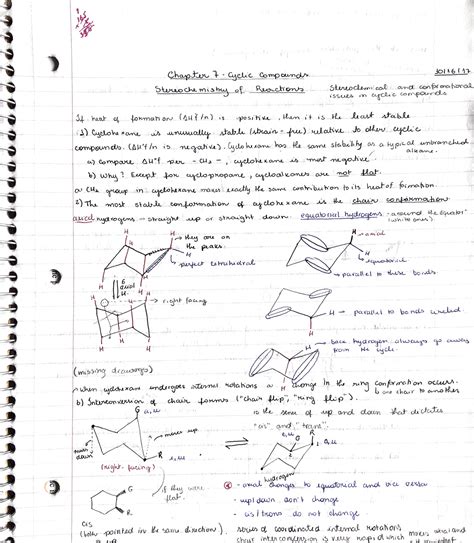 Chapter 7 - Cyclic Compounds
10/16/17
Stereochemistry of Reactions
Stereochemical and conformational
issues in cyclic compounds
If heat of formation (ΔH°f/n) is positive, then it is the least stable
1) Cyclohexane is unusually stable (strain-free) relative to other cyclic
compounds. (ΔH°f/n is negative). Cyclohexane has the same stability as a typical unbranched
alkane.
a) compare ΔH°f per -CH₂-, cyclohexane is most negative.
b) Why? Except for cyclopropane, cycloalkanes are not flat.
a CH₂ group in cyclohexane makes exactly the same contribution to its heat of formation.
2) The most stable conformation of cyclohexane is the chair conformation.
axial hydrogens - straight up or straight down.
equatorial hydrogens - around the equator
H
they are on
the peaks
perfect tetrahedral
6
axial
H
right facing
H - axial
H
equatorial
parallel to these bonds.
H - parallel to bonds circled.
H
back hydrogens always go away
from the cycle.
(missing drawings)
when cyclohexane undergoes internal rotations a change in the ring conformation occurs.
one chair to another
b) Interconversion of chair forms ("chair flip", "ring flip").
is the sense of up and down that dictates
"cis" and "trans".
G
R
(right facing)
hydrogen
if they were
flat.
G
R
cis
(both pointed in the same direction)
up
- axial changes to equatorial and vice versa
- up/down don't change
- cis/trans do not change
series of coordinated internal rotations
chair interconversion is very rapid which